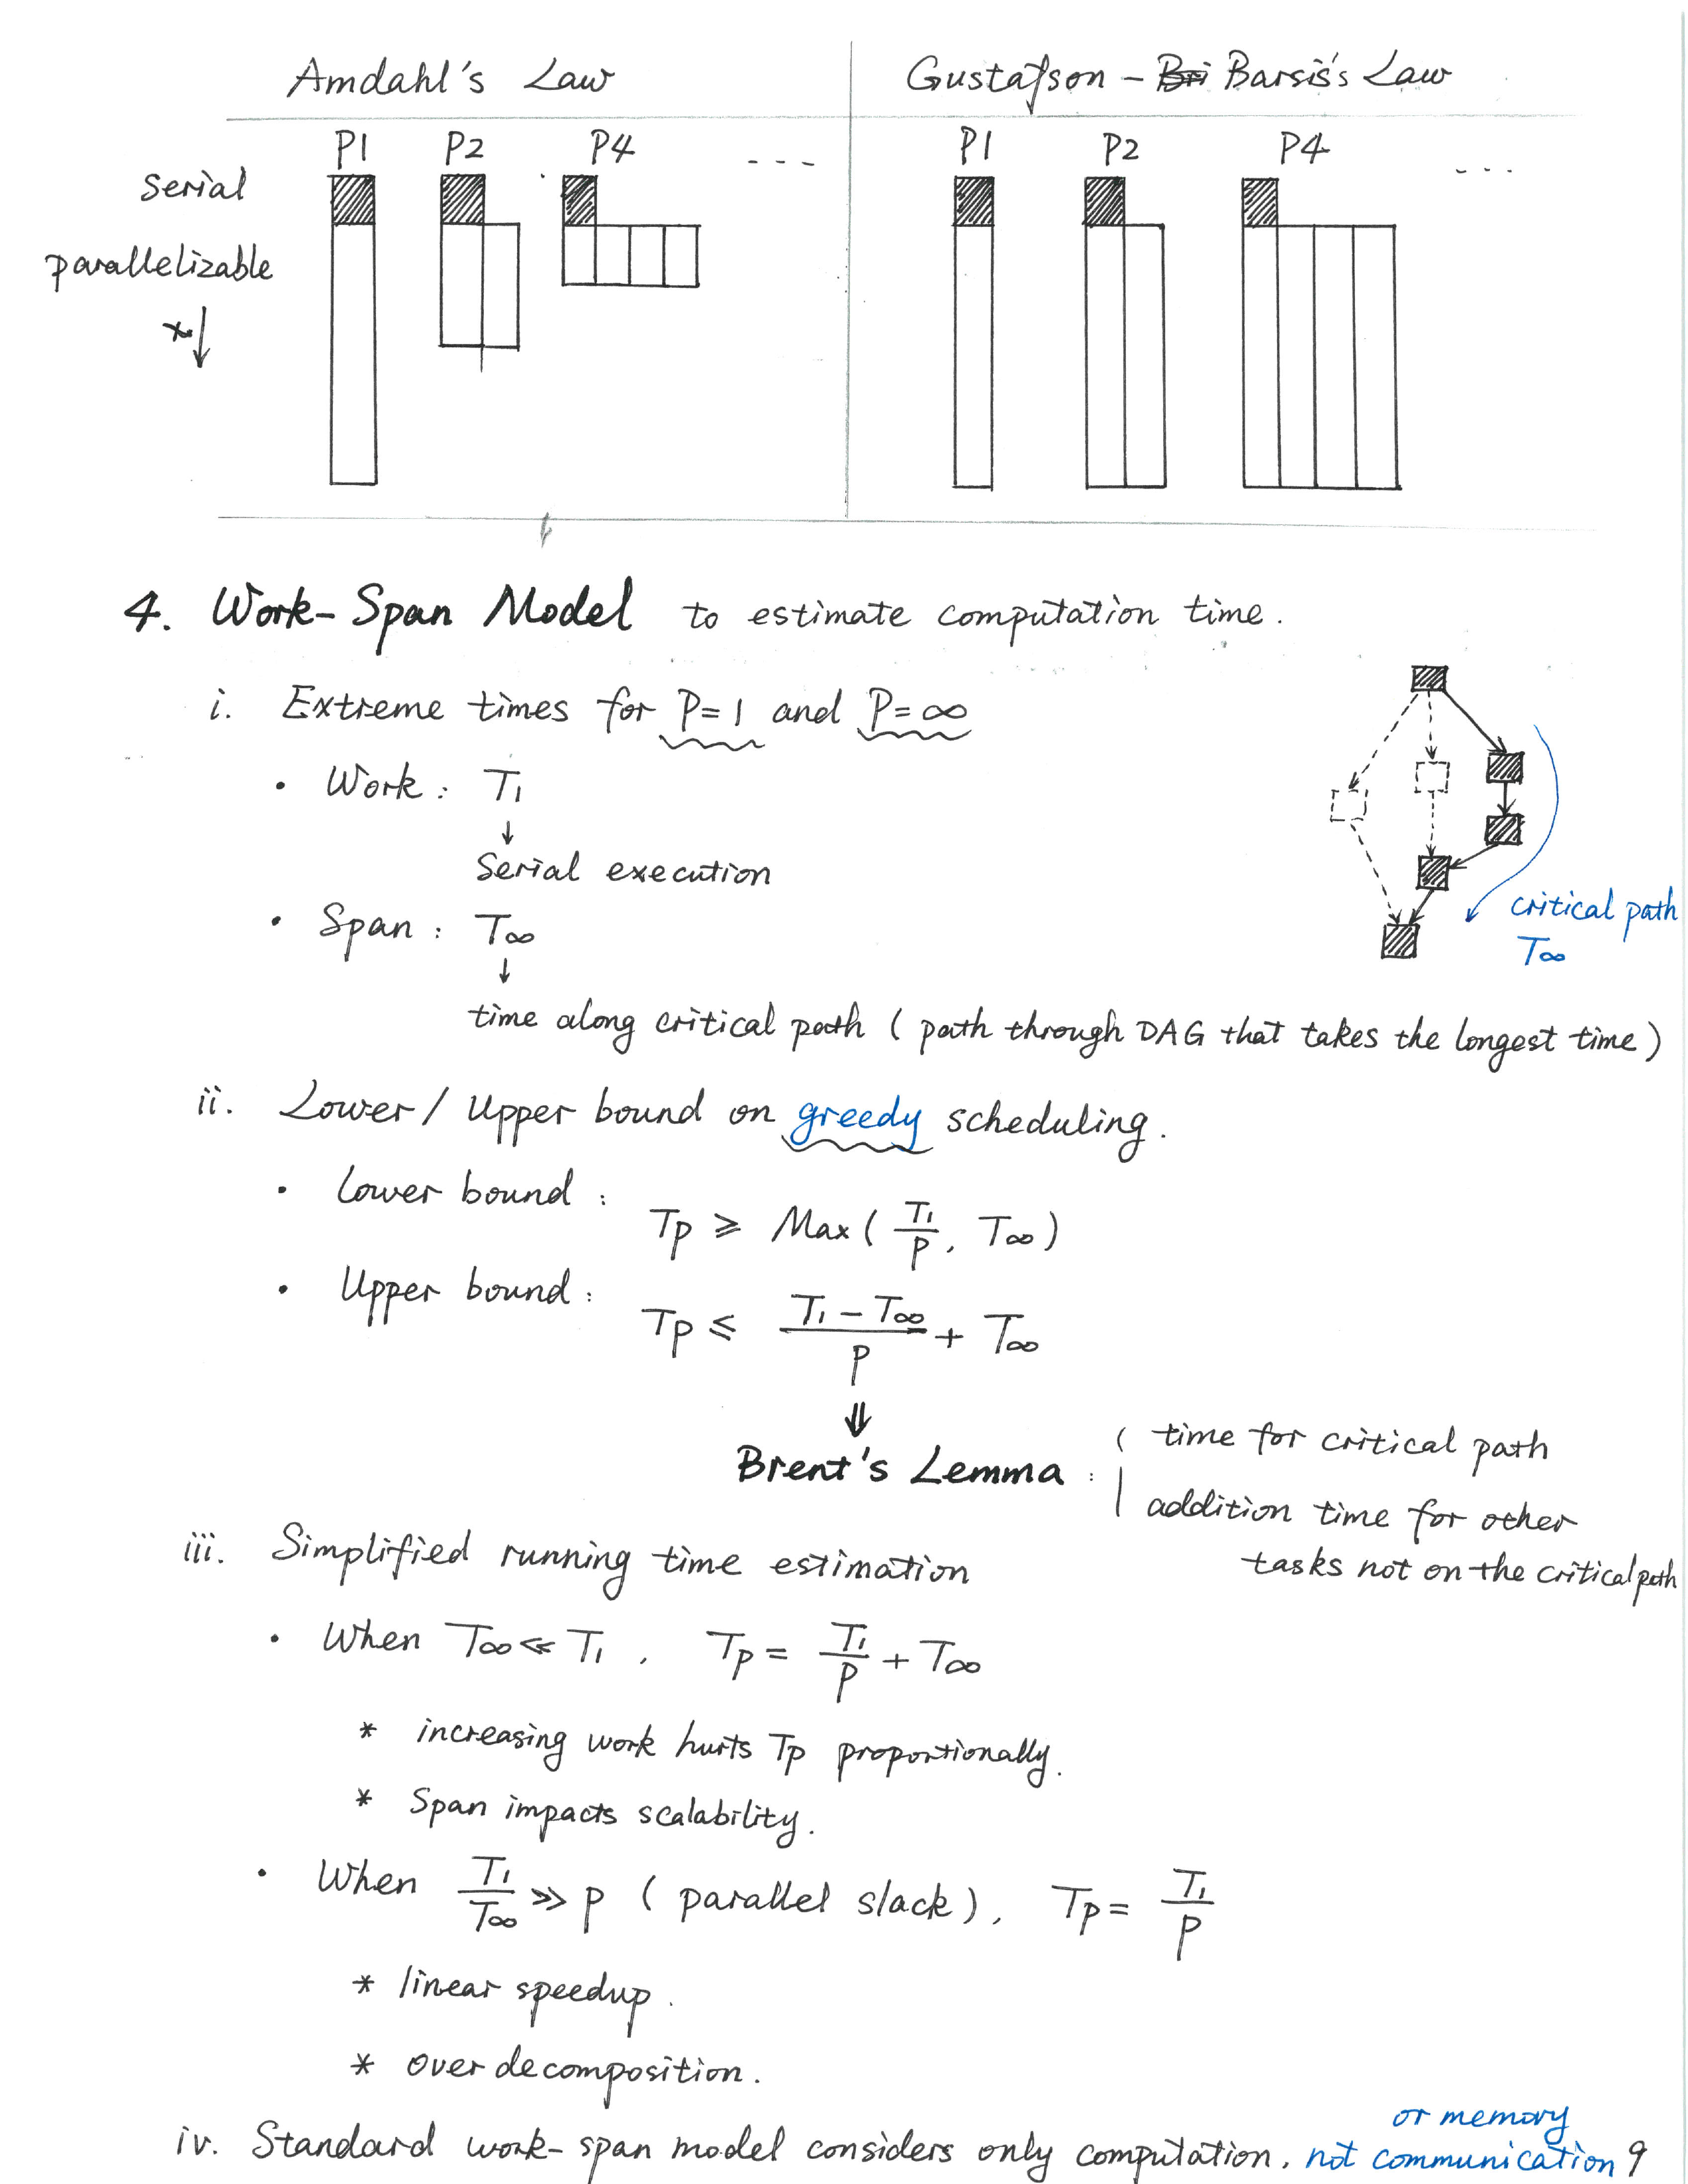 Amdahl's Law
Gustafson - Barsis's Law
P1 P2 P4 ---
P1 P2 P4 ---
serial
parallelizable
4. Work-Span Model to estimate computation time.
i. Extreme times for P=1 and P=∞
• Work: T₁
↓
Serial execution
• Span: T∞
↓
time along critical path (path through DAG that takes the longest time)
critical path
T∞
ii. Lower/Upper bound on greedy scheduling.
• Lower bound:
Tp ≥ Max(T₁/P, T∞)
• Upper bound:
Tp ≤ (T₁ - T∞)/P + T∞
⇓
Brent's Lemma:
time for critical path
addition time for other
tasks not on the critical path
iii. Simplified running time estimation
• When T∞ ≪ T₁, Tp = T₁/P + T∞
* increasing work hurts Tp proportionally.
* Span impacts scalability.
• When T₁/T∞ ≫ P (parallel slack), Tp = T₁/P
* linear speedup.
* over decomposition.
or memory
iv. Standard work-span model considers only computation, not communication 9